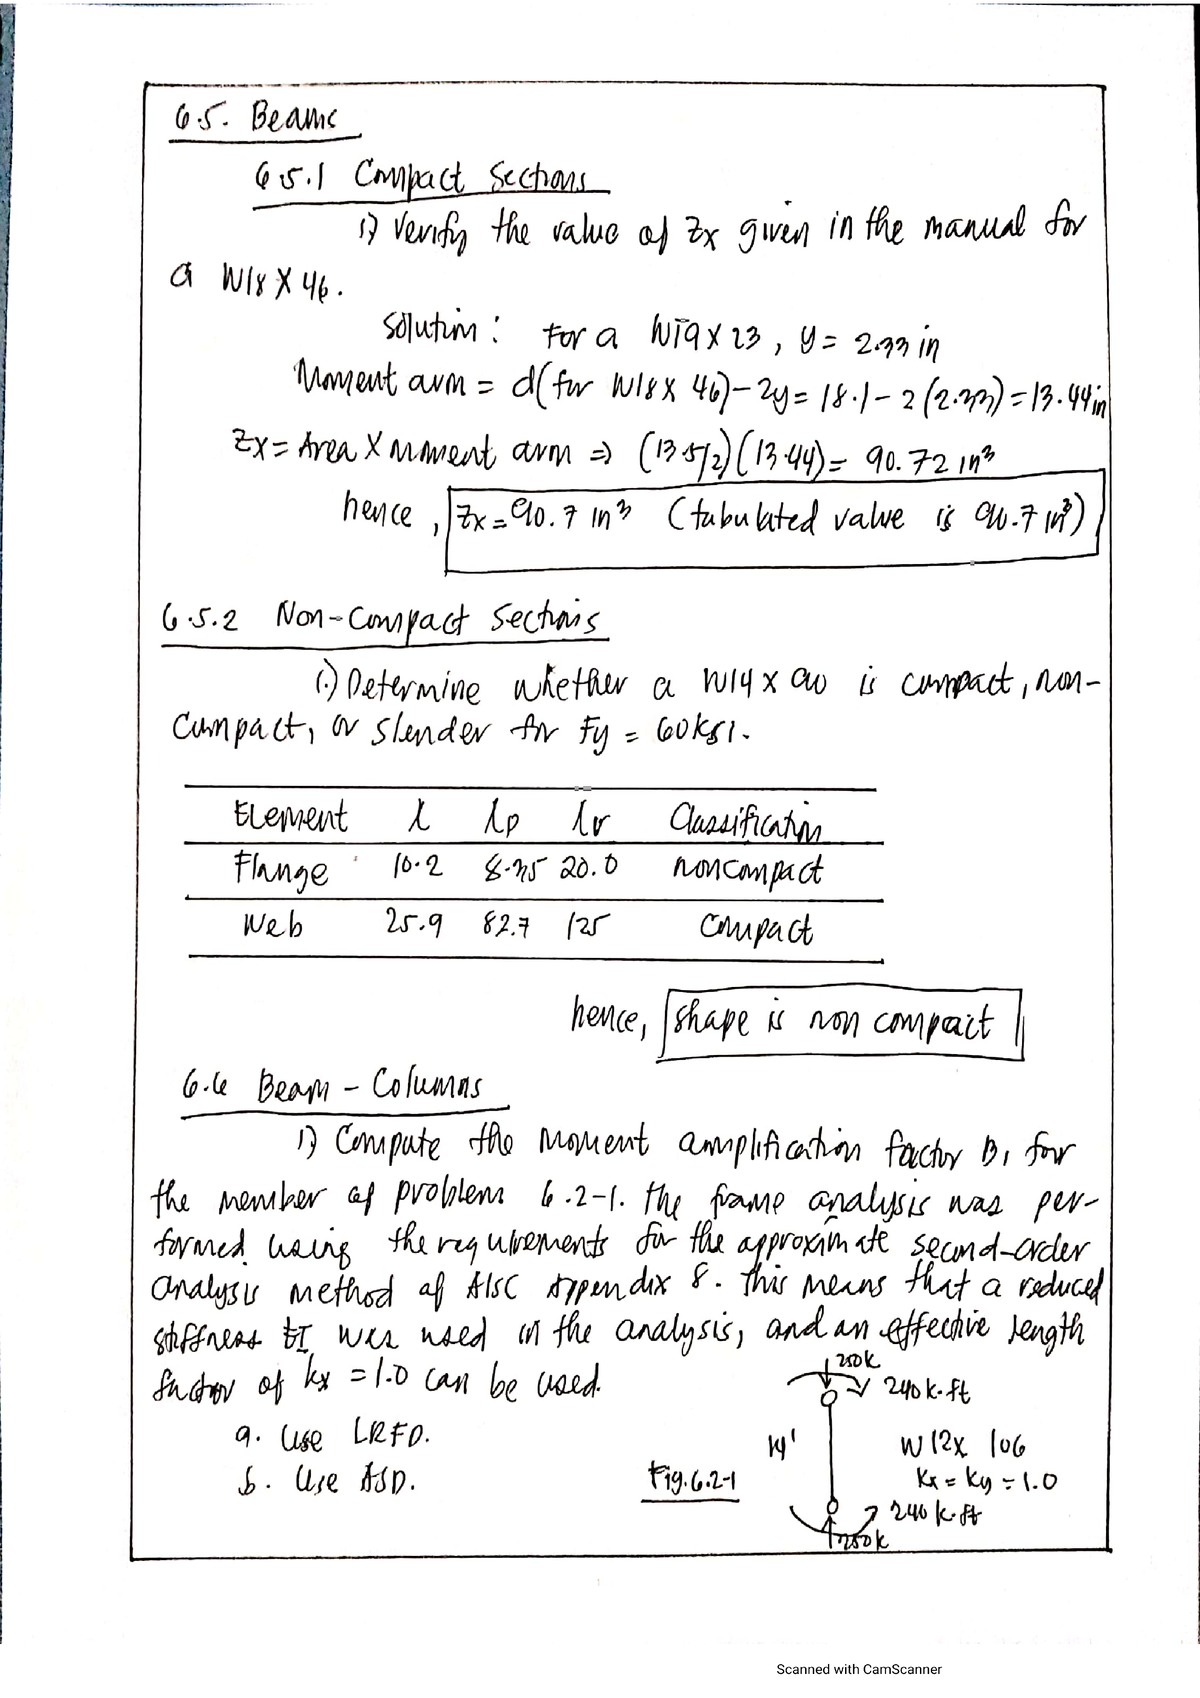 6.5. Beams
6.5.1 Compact Sections
1) Verify the value of Zx given in the manual for
a W18 X 46.
Solution: For a WT9 X 23, y = 2.33 in
Moment arm = d(for W18 X 46) - 2y = 18.1 - 2(2.33) = 13.44 in
Zx = Area X Moment arm ⇒ (13.5/2)(13.44) = 90.72 in³
hence, Zx = 90.7 in³ (tabulated value is 90.7 in³)
6.5.2 Non-Compact Sections
1.) Determine whether a W14 x 90 is compact, non-
compact, or slender for Fy = 60ksi.
Element λ λp λr Classification
Flange 10.2 8.35 20.0 noncompact
Web 25.9 82.7 125 compact
hence, shape is non compact
6.6 Beam - Columns
1) Compute the moment amplification factor B1 for
the member of problem 6.2-1. The frame analysis was per-
formed using the requirements for the approximate second-order
analysis method of AISC Appendix 8. This means that a reduced
stiffness EI was used in the analysis, and an effective length
factor of kx = 1.0 can be used.
250k
240 k-ft
a. Use LRFD.
14'
W 12 x 106
b. Use ASD.
Fig. 6.2-1
Kx = Ky = 1.0
240 k-ft
250k
Scanned with CamScanner